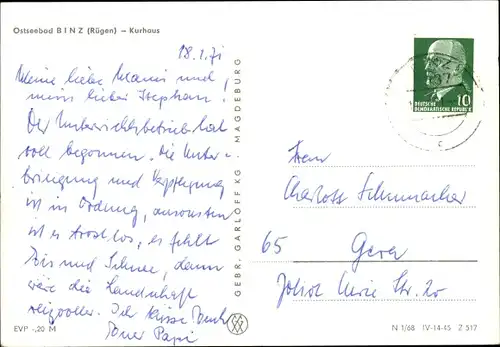 Ostseebad BINZ (Rügen) — Kurhaus
18.1.71
Meine liebe Mami und
mein lieber Stephan!
Der Unterrichtsbetrieb hat
voll begonnen. Die Unter-
bringung und Verpflegung
ist in Ordnung, ansonsten
ist es trostlos, es fehlt
Eis und Schnee, dann
wäre die Landschaft
reizvoller. Ich küsse Euch
Euer Papi
EVP -,20 M
GEBR. GARLOFF KG MAGDEBURG
DEUTSCHE
DEMOKRATISCHE REPUBLIK
10
c
Herrn
Schumacher
65 Gera
Str. 20
N 1/68 IV-14-45 Z 517